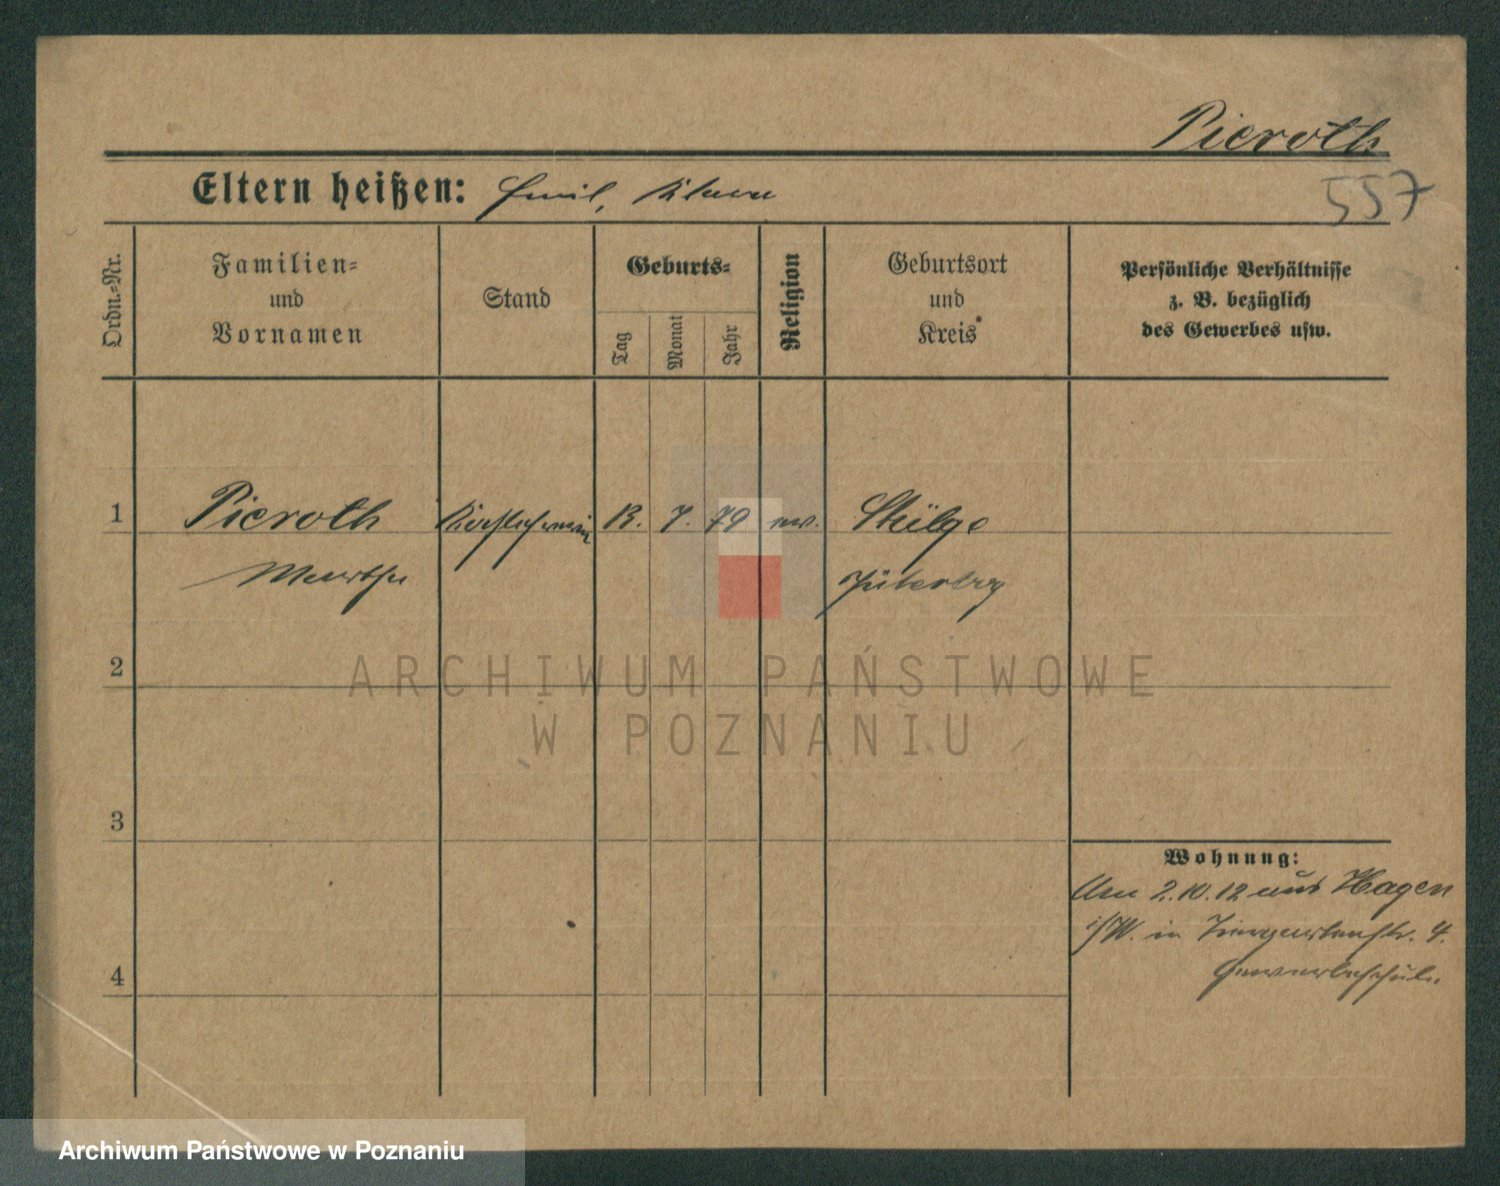 Pieroth
557
Eltern heißen: Emil, Klara
Ordn.-Nr.
Familien-
und
Vornamen
Stand
Geburts-
Tag
Monat
Jahr
Religion
Geburtsort
und
Kreis
Persönliche Verhältnisse
z. B. bezüglich
des Gewerbes usw.
1 Pieroth 13. 7. 79 ev. Stülpe
Martha Jüterbog
2
ARCHIWUM PAŃSTWOWE
W POZNANIU
3
Wohnung:
Am 2.10.12 aus Hagen
i/W. in Tiergartenstr. 4.
Gewerbeschule.
4
Archiwum Państwowe w Poznaniu